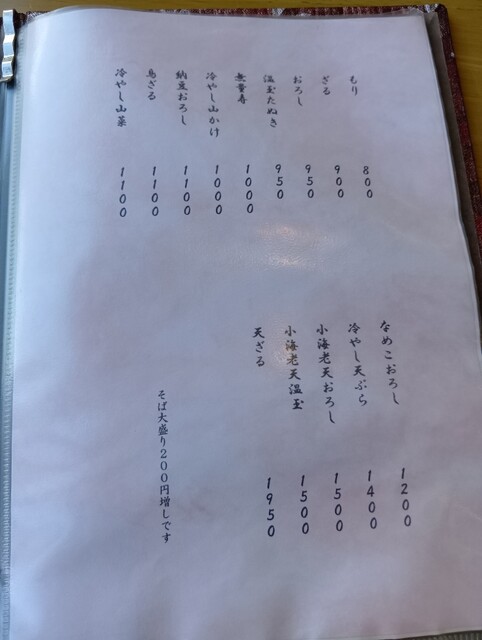 もり 800
ざる 900
おろし 950
温玉たぬき 950
無量寿 1000
冷やし山かけ 1000
納豆おろし 1100
鳥ざる 1100
冷やし山菜 1100
なめこおろし 1200
冷やし天ぷら 1400
小海老天おろし 1500
小海老天温玉 1500
天ざる 1950
そば大盛り200円増しです